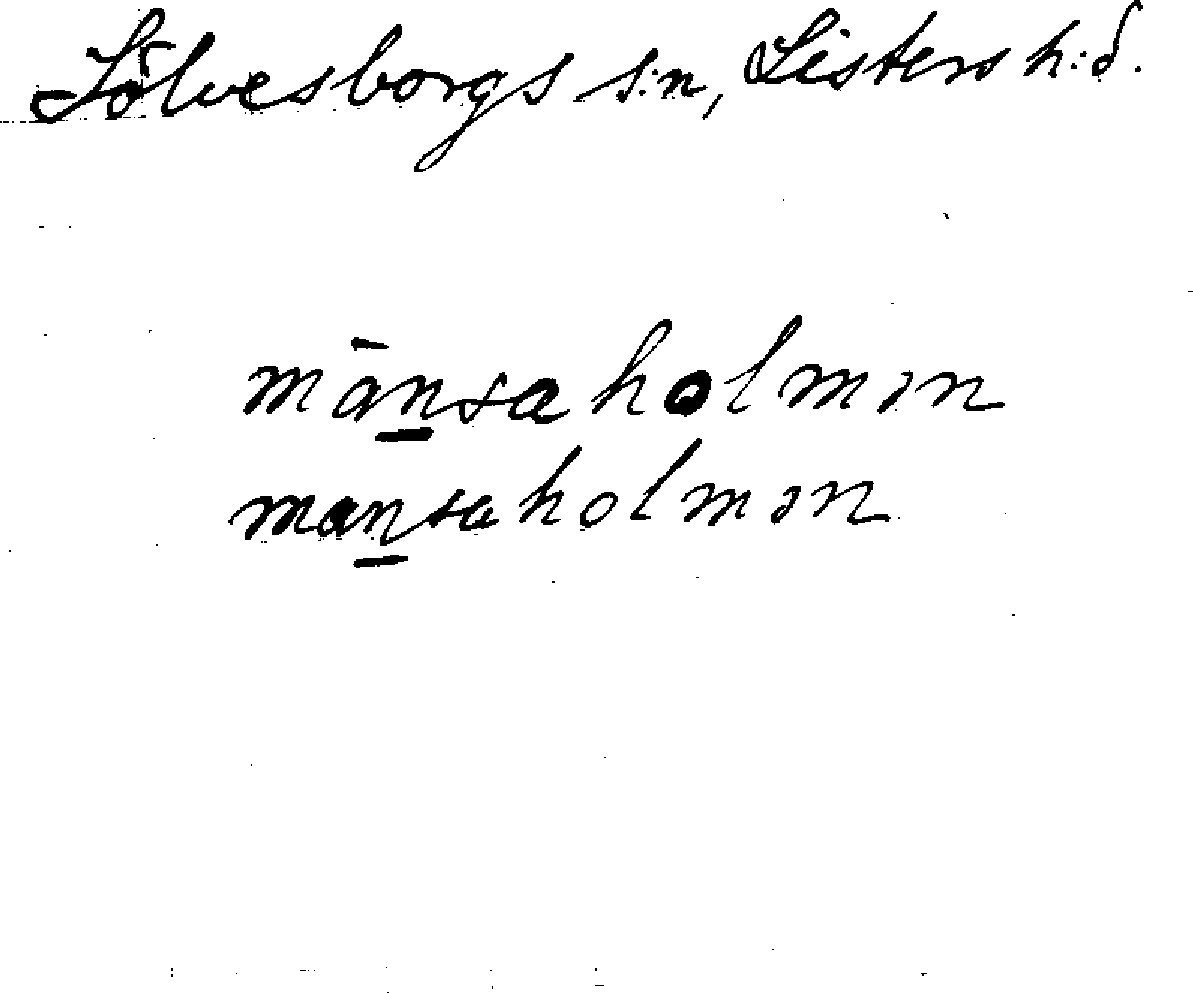 Sölvesborgs s:n, Listers h:d.
mān̲saholmən
man̲saholmən